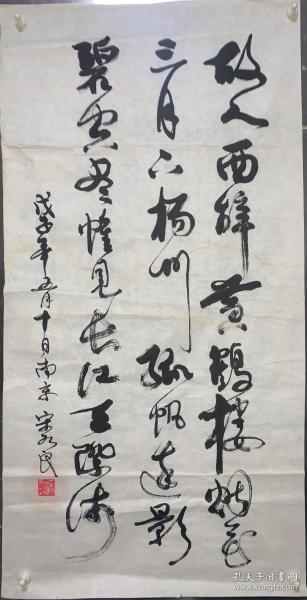 故人西辞黄鹤楼烟花
三月下杨州孤帆远影
碧空尽惟见长江天际流
戊子年五月十日南京宋永民
孔夫子旧书网